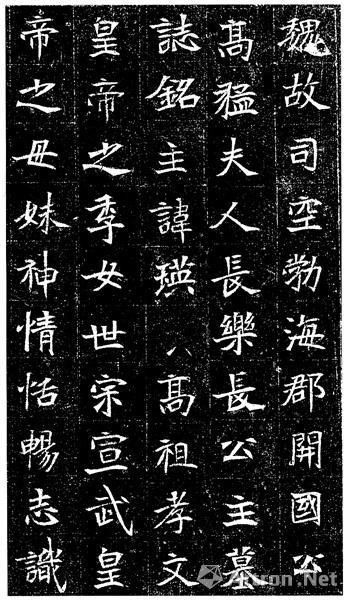 魏故司空勃海郡開國公
髙猛夫人長樂長公主墓
誌銘主諱瑛髙祖孝文
皇帝之季女世宗宣武皇
帝之母妹神情恬暢志識
Artron.Net